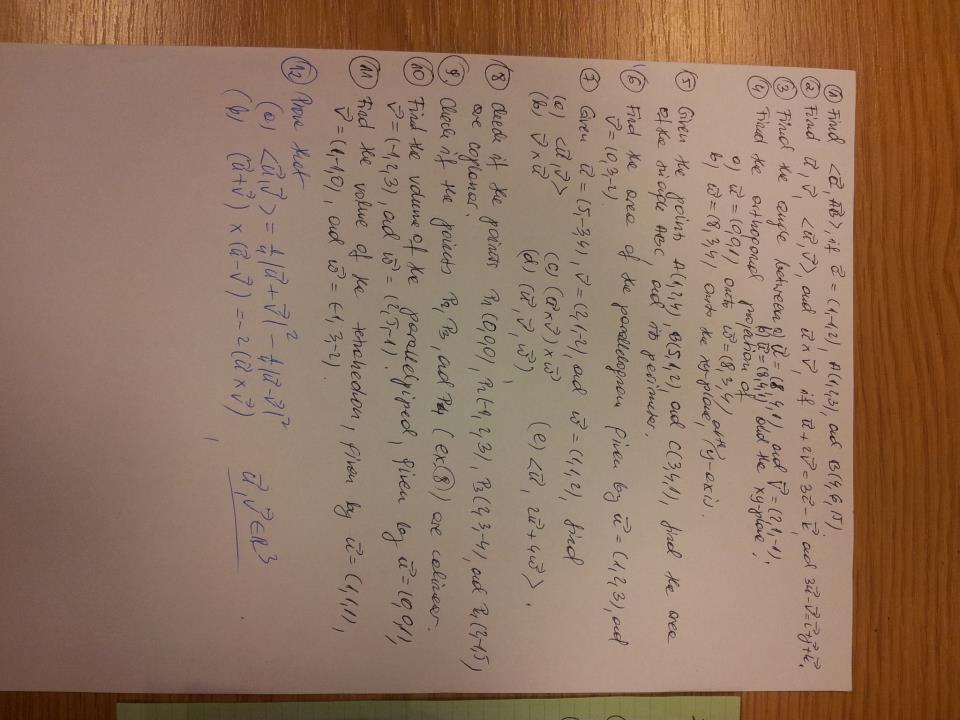 ① Find <u⃗, AB⃗>, if u⃗ = (1,-1,2), A(1,2,3), and B(4,6,15).
② Find u⃗, v⃗, <u⃗,v⃗>, and u⃗ × v⃗, if u⃗ + 2v⃗ = 3i⃗ - k⃗, and 3u⃗ - v⃗ = i⃗ + j⃗ + k⃗.
③ Find the angle between a) u⃗ = (8,4,1), and v⃗ = (2,1,-1),
b) u⃗ = (8,4,1), and the xy-plane.
④ Find the orthogonal projection of
a) u⃗ = (0,9,1) onto w⃗ = (8,3,4)
b) w⃗ = (8,3,4) onto the xy-plane, y-axis.
⑤ Given the points A(1,2,4), B(5,1,2), and C(3,4,1), find the area
of the triangle ABC, and its perimeter.
⑥ Find the area of the parallelogram given by u⃗ = (1,2,3), and
v⃗ = (0,3,-2).
⑦ Given u⃗ = (5,-3,4), v⃗ = (2,1,-2), and w⃗ = (1,1,2), find
(a) <u⃗,v⃗> (c) (u⃗ × v⃗) × w⃗ (e) <u⃗, 2u⃗ + 4w⃗>.
(b) v⃗ × u⃗ (d) (u⃗, v⃗, w⃗)
⑧ Check if the points P1(0,0,0), P2(-1,2,3), P3(2,3,-4), and P4(2,-1,5),
are coplanar.
⑨ Check if the points P2, P3, and P4 (ex ⑧) are colinear.
⑩ Find the volume of the parallelepiped, given by u⃗ = (0,0,1),
v⃗ = (-1,2,3), and w⃗ = (2,5,-1).
⑪ Find the volume of the tetrahedron, given by u⃗ = (1,1,1),
v⃗ = (1,-1,0), and w⃗ = (-1,3,-2).
⑫ Prove that
(a) <u⃗,v⃗> = 1/4|u⃗ + v⃗|² - 1/4|u⃗ - v⃗|²
(b) (u⃗ + v⃗) × (u⃗ - v⃗) = -2(u⃗ × v⃗) u⃗, v⃗ ∈ ℝ³